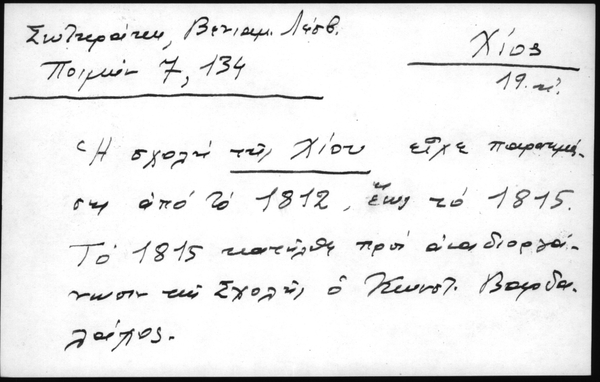 Σωτηράκη, Βενιαμ. Λέσβ.
Ποιμήν 7, 134
Χίος
19. αἰ.
Ἡ σχολή τῆς Χίου εἶχε παρακμά-
σει ἀπό τό 1812, ἕως τό 1815.
Τό 1815 κατῆλθε πρός ἀναδιοργά-
νωσιν τῆς Σχολῆς ὁ Κωνστ. Βαρδα-
λάχος.